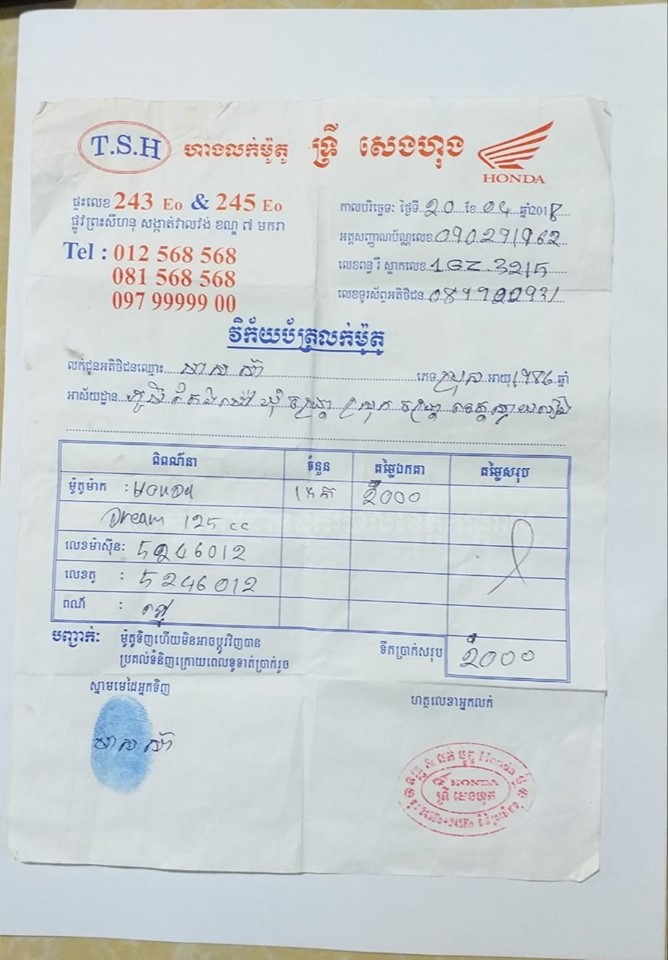 T.S.H ហាងលក់ម៉ូតូ ទ្រី សេងហុង
HONDA
ផ្ទះលេខ 243 Eo & 245 Eo
ផ្លូវព្រះសីហនុ សង្កាត់វាលវង់ ខណ្ឌ ៧ មករា
Tel : 012 568 568
081 568 568
097 99999 00
កាលបរិច្ឆេទ: ថ្ងៃទី 20 ខែ 04 ឆ្នាំ 2018
អត្តសញ្ញាណប័ណ្ណលេខ 090291962
លេខពន្ធ រឺ ស្លាកលេខ 1GZ.3215
លេខទូរស័ព្ទអតិថិជន
វិក័យប័ត្រលក់ម៉ូតូ
លក់ជូនអតិថិជនឈ្មោះ: មាស សាំ ភេទ ប្រុស អាយុ 1986 ឆ្នាំ
អាស័យដ្ឋាន ភូមិ ឃុំ ចន្ទ្រា ស្រុក ចន្ទ្រា ខេត្ត ស្វាយរៀង
ពិពណ៌នា ចំនួន តម្លៃឯកតា តម្លៃសរុប
ម៉ូតូម៉ាក : HONDA 1 គ្រឿង 2000
Dream 125 cc
លេខម៉ាស៊ីន: 5246012
លេខតួ : 5246012
ពណ៌ : ខ្មៅ
បញ្ជាក់: ម៉ូតូទិញហើយមិនអាចប្តូរវិញបាន
ប្រគល់ទំនិញក្រោយពេលទូទាត់ប្រាក់រួច
ទឹកប្រាក់សរុប 2000
ស្នាមមេដៃអ្នកទិញ
ហត្ថលេខាអ្នកលក់
មាស សាំ
HONDA
ទ្រី សេងហុង